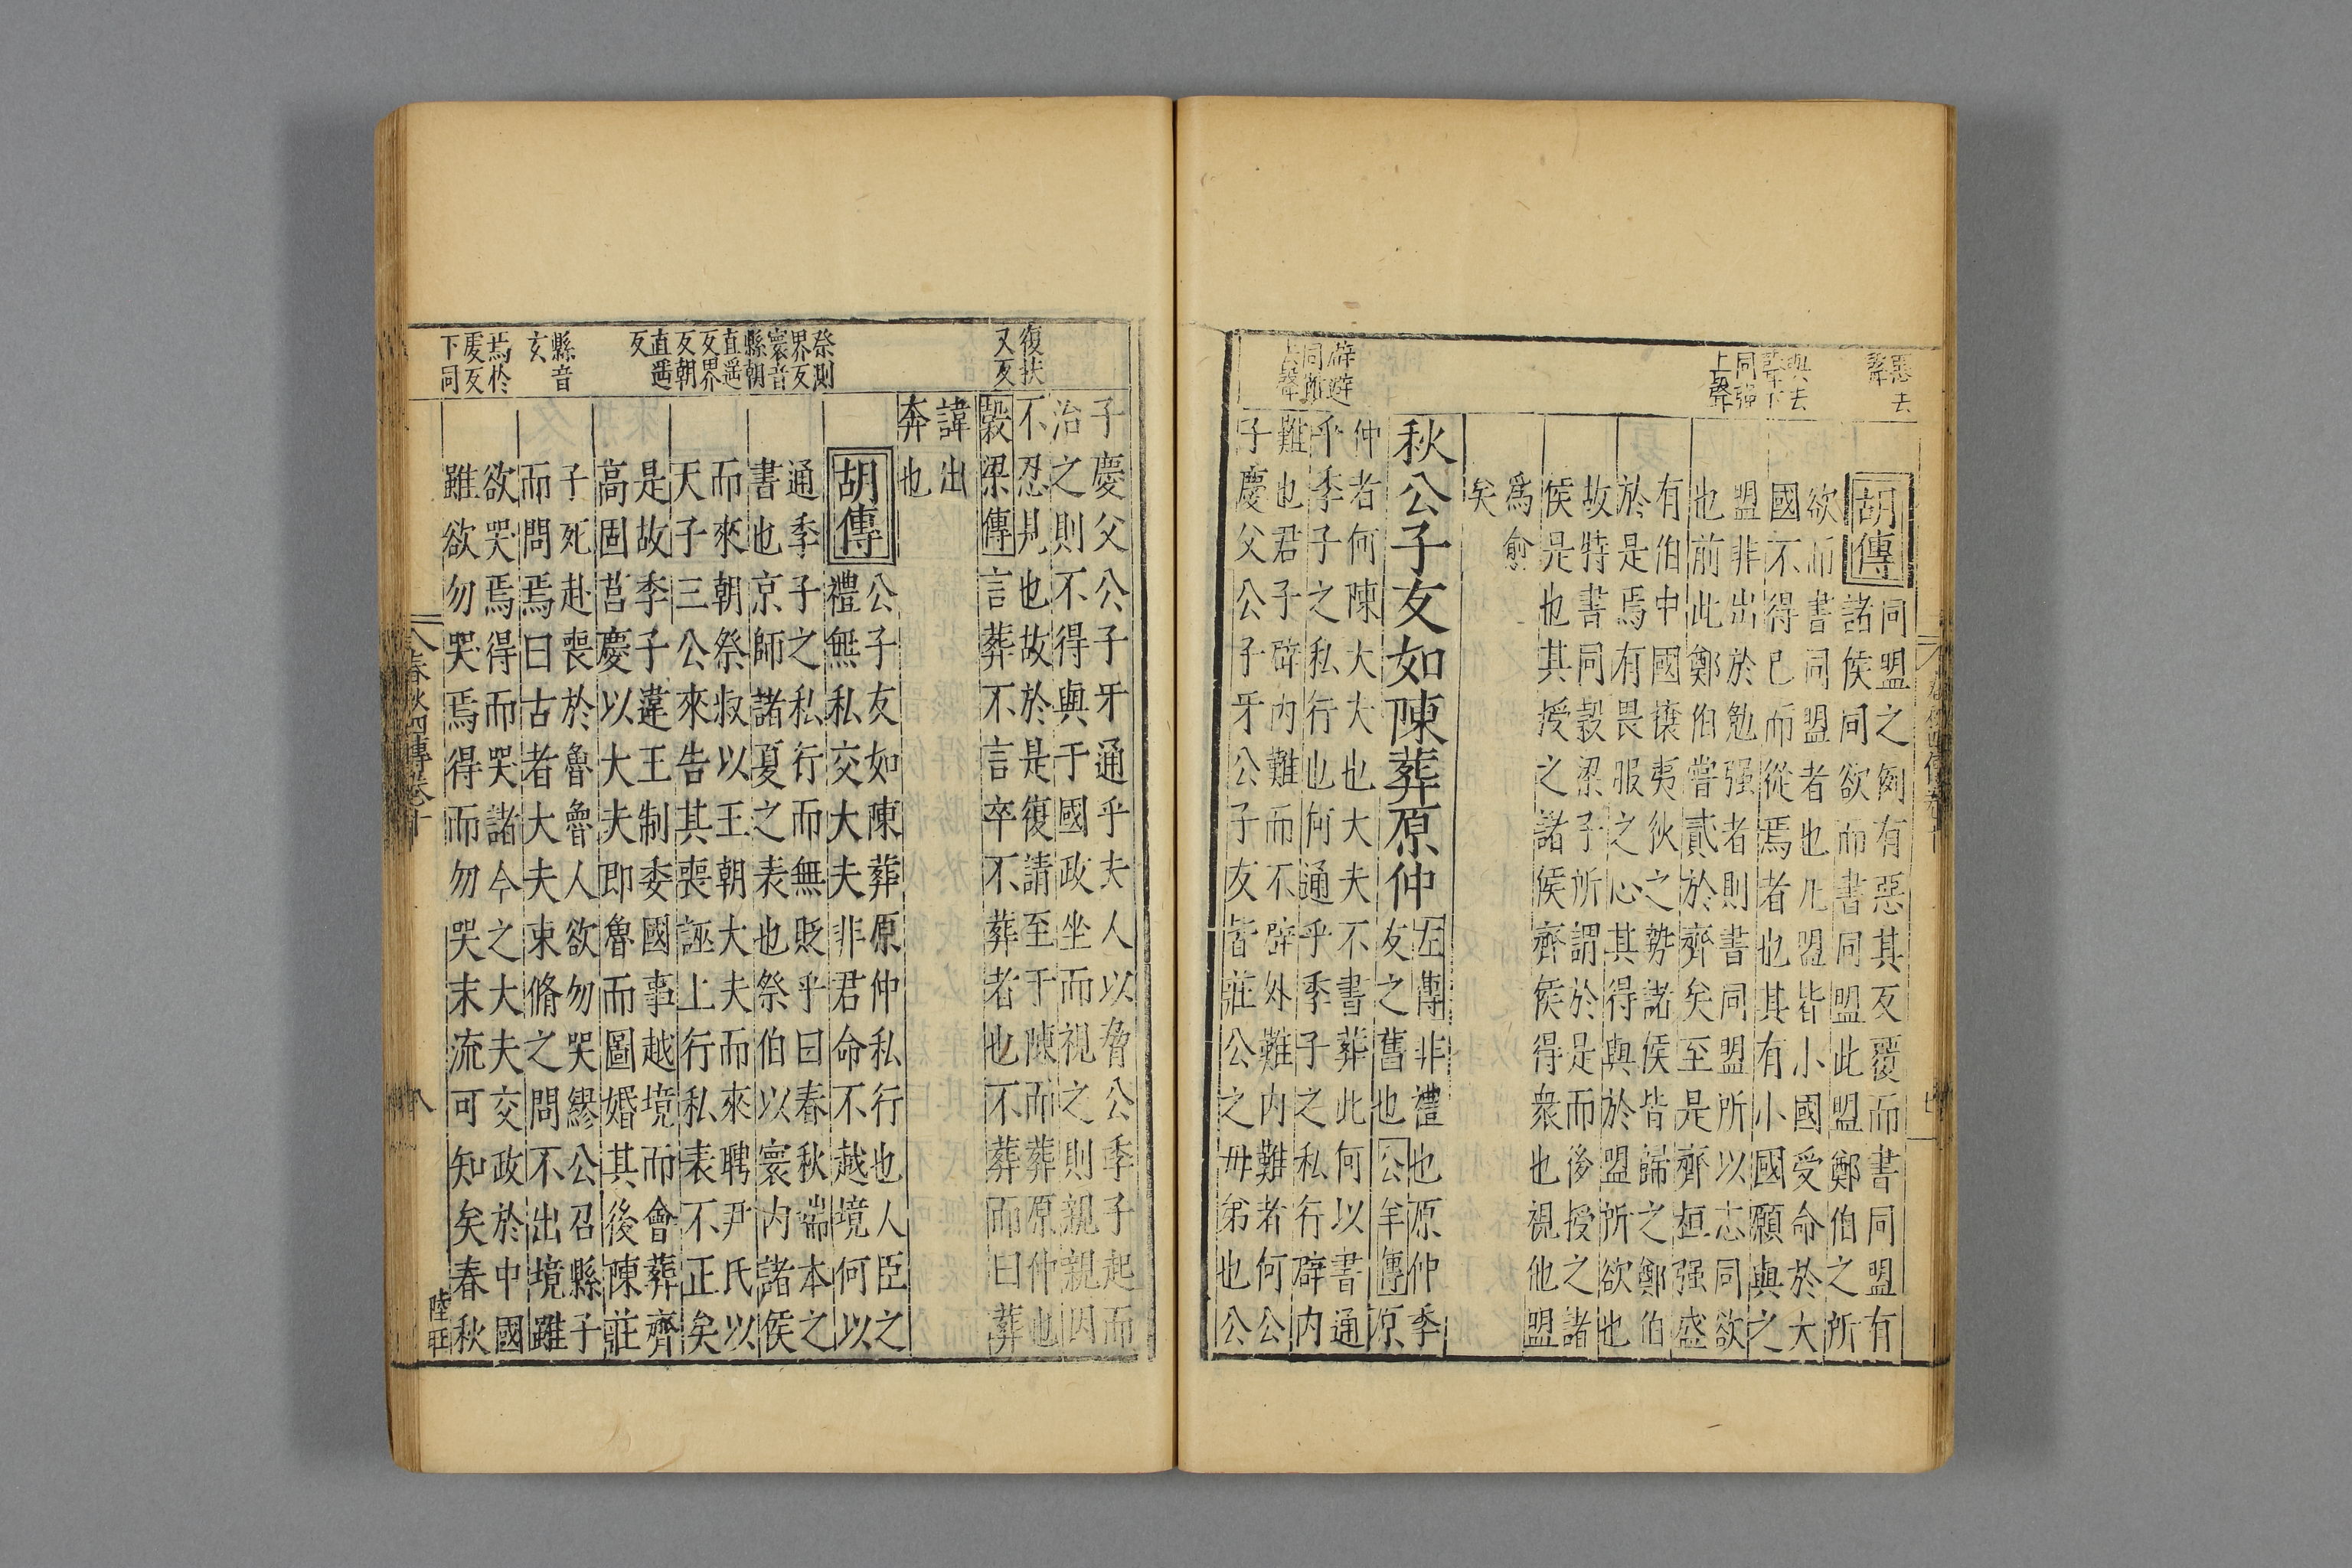 惡去
聲
與去
聲下
同强
上聲
胡傳
同盟之例有惡其反覆而書同盟有
諸侯同欲而書同盟此盟鄭伯之所
欲而書同盟者也凡盟皆小國受命於大
國不得已而從焉者也其有小國願與之
盟非出於勉强者則書同盟所以志同欲
也前此鄭伯嘗貳於齊矣至是齊桓强盛
有伯中國攘夷狄之勢諸侯皆歸之鄭伯
於是焉有畏服之心其得與於盟所欲也
故特書同穀梁子所謂於是而後授之諸
侯是也其授之諸侯齊侯得衆也視他盟
爲愈
矣
秋公子友如陳葬原仲
左傳非禮也原仲季
友之舊也公羊傳原
仲者何陳大夫也大夫不書葬此何以書通
乎季子之私行也何通乎季子之私行辟内
難也君子辟内難而不辟外難内難者何公
子慶父公子牙公子友皆莊公之母弟也公
辟避
同難
去聲
復扶
又反
子慶父公子牙通乎夫人以脅公季子起而
治之則不得與于國政坐而視之則親親因
不忍見也故於是復請至于陳而葬原仲也
穀梁傳言葬不言卒不葬者也不葬而曰葬
諱出
奔也
胡傳
公子友如陳葬原仲私行也人臣之
禮無私交大夫非君命不越境何以
通季子之私行而無貶乎曰春秋端本之
書也京師諸夏之表也祭伯以寰内諸侯
而來朝祭叔以王朝大夫而來聘尹氏以
天子三公來告其喪誣上行私表不正矣
是故季子違王制委國事越境而會葬齊
高固莒慶以大夫即魯而圖婚其後陳莊
子死赴喪於魯魯人欲勿哭繆公召縣子
而問焉曰古者大夫束脩之問不出境雖
欲哭焉得而哭諸今之大夫交政於中國
雖欲勿哭焉得而勿哭末流可知矣春秋
祭則
界反
寰音
縣朝
直遥
反界
反朝
直遥
反
縣音
玄
焉於
虔反
下同
春秋四傳卷十
八
陸旺